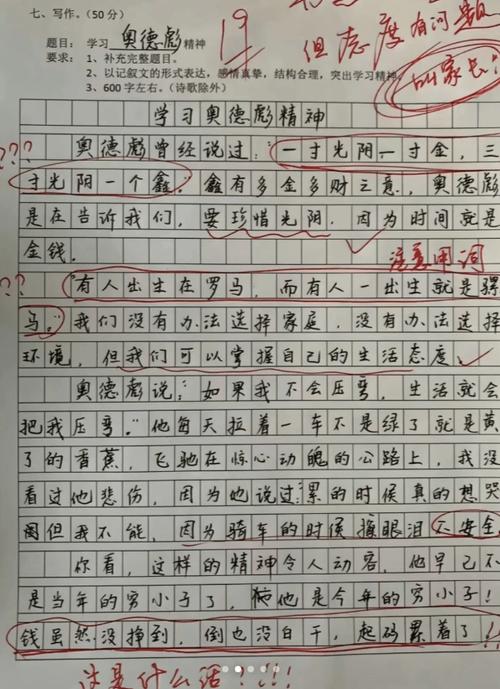 七、写作。(50分)
19
但态度有问题
叫家长!
题目: 学习 奥德彪 精神
要求: 1、补充完整题目。
2、以记叙文的形式表达,感情真挚,结构合理,突出学习精神。
3、600字左右。(诗歌除外)
学习奥德彪精神
???
奥德彪曾经说过:“一寸光阴一寸金,三
寸光阴一个鑫。”鑫有多金多财之意,奥德彪
是在告诉我们,要珍惜光阴。因为时间就是
金钱。
注意用词
??
“有人出生在罗马,而有人一出生就是骡
马。”我们没有办法选择家庭,没有办法选择
环境,但我们可以掌握自己的生活态度。
奥德彪说:“如果我不会压弯,生活就会
把我压弯。”他每天拉着一车不是绿了就是黄
了的香蕉,飞驰在惊心动魄的公路上,我没
看过他悲伤,因为他说过:累的时候真的想哭
但我不能,因为骑车的时候擦眼泪不安全。
你看,这样的精神令人动容,他早已不
是当年的穷小子了,他是今年的穷小子!
钱虽然没挣到,倒也没白干,起码累着了!
这是什么话?!!!